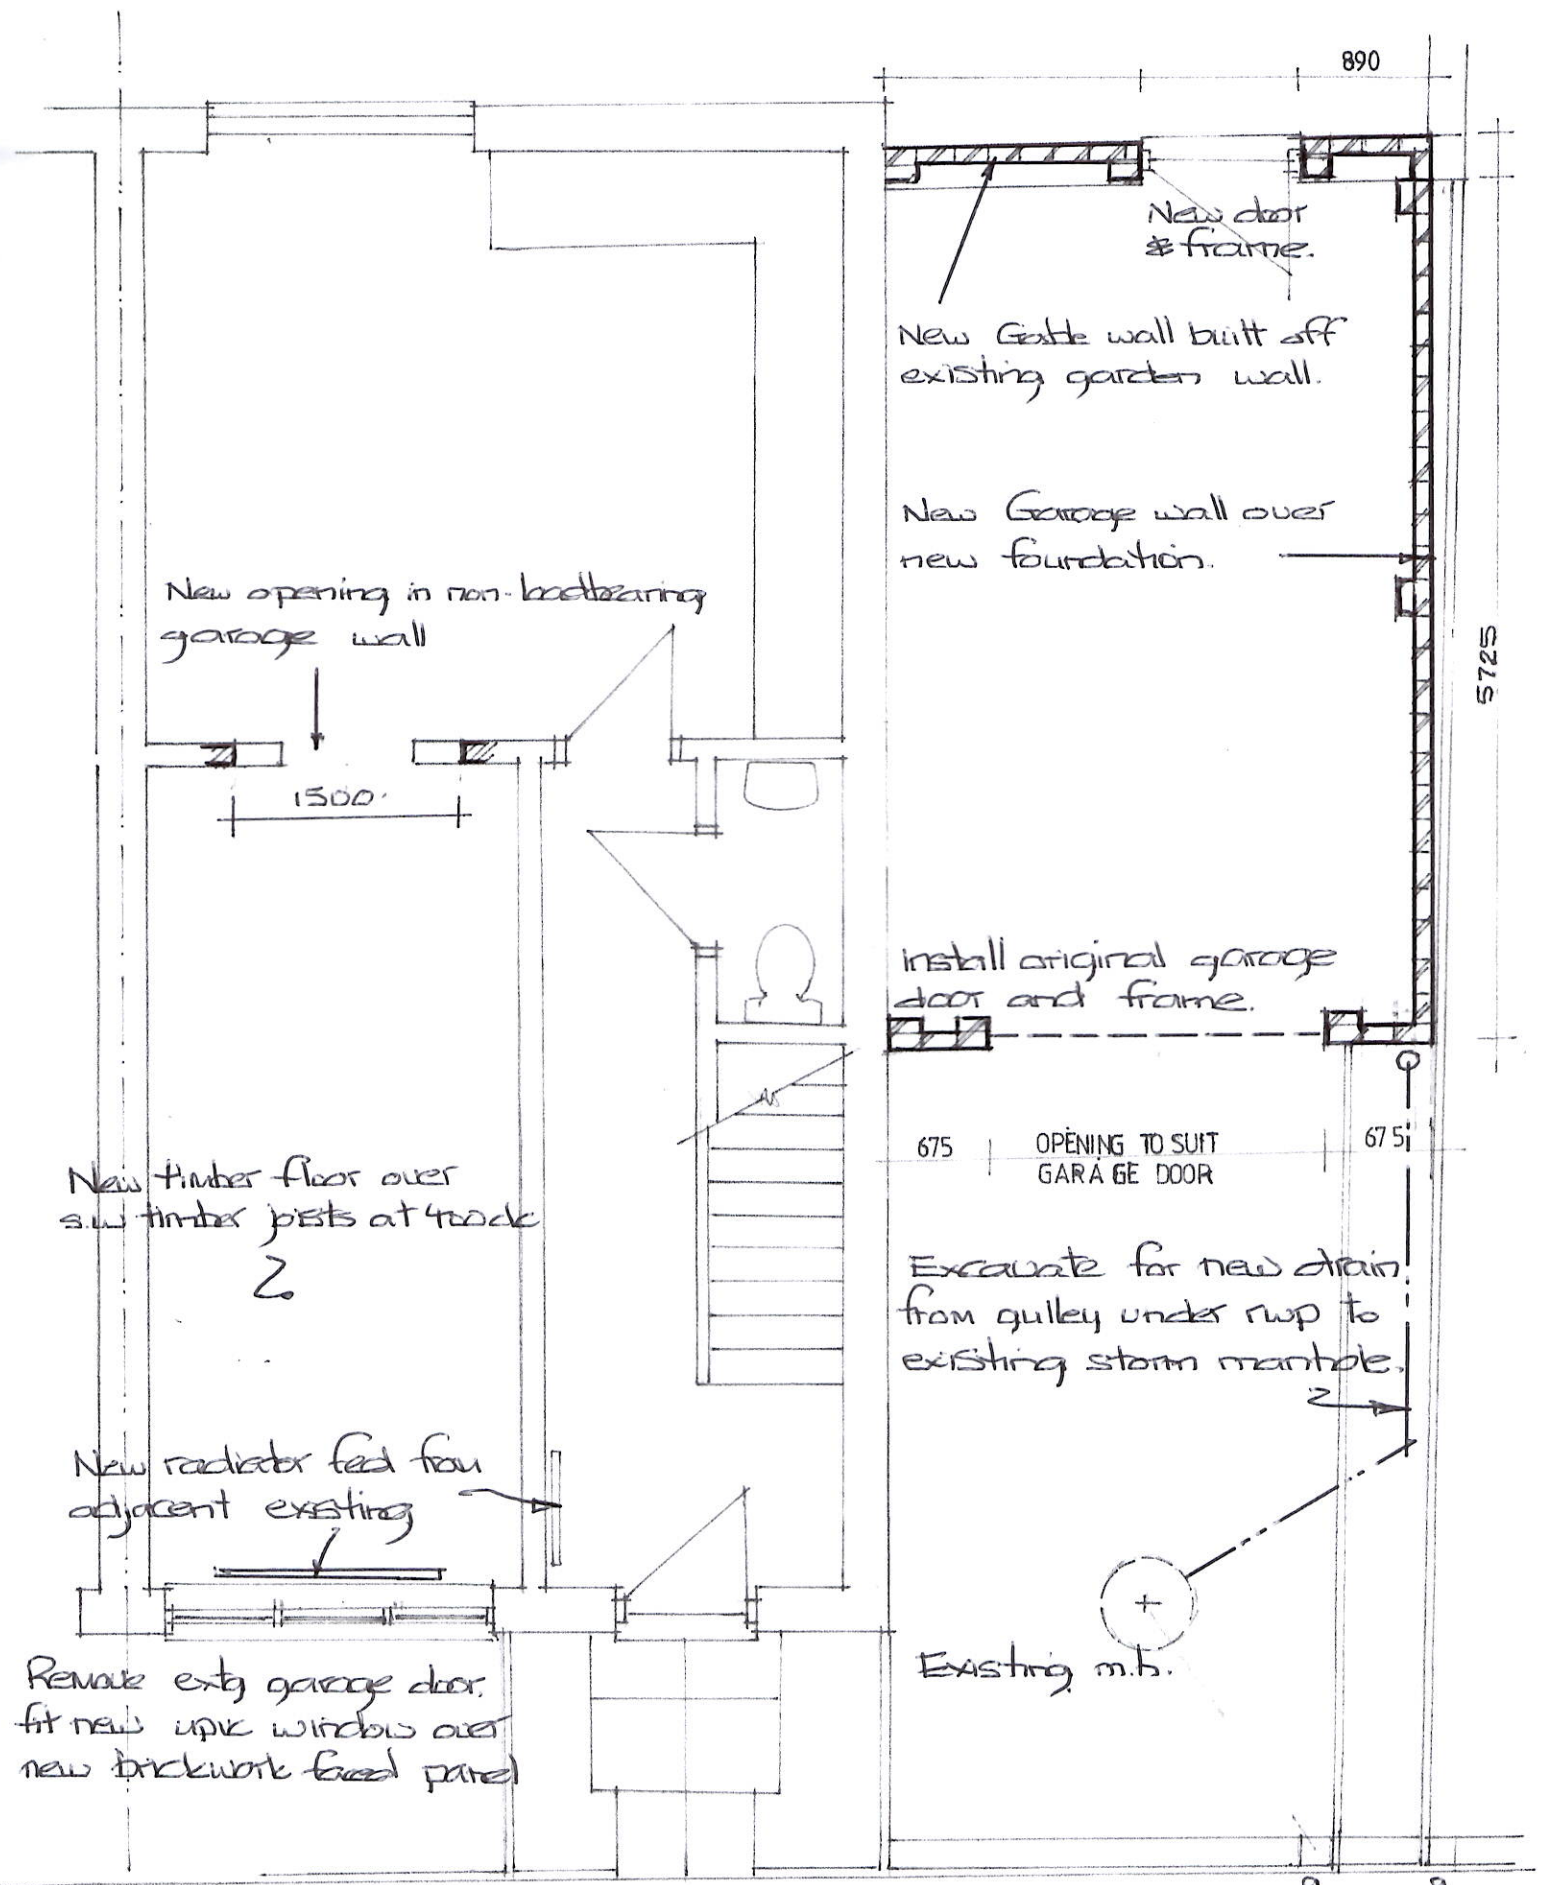 890
New door
& frame.
New Gable wall built off
existing garden wall.
New Garage wall over
new foundation.
5725
New opening in non-loadbearing
garage wall
1500.
install original garage
door and frame.
675
OPENING TO SUIT
GARAGE DOOR
675
New timber floor over
s.w timber joists at 400c/c
Excavate for new drain
from gulley under rwp to
existing storm manhole.
New radiator fed from
adjacent existing
Existing m.h.
Remove extg garage door.
fit new upvc window over
new brickwork faced panel